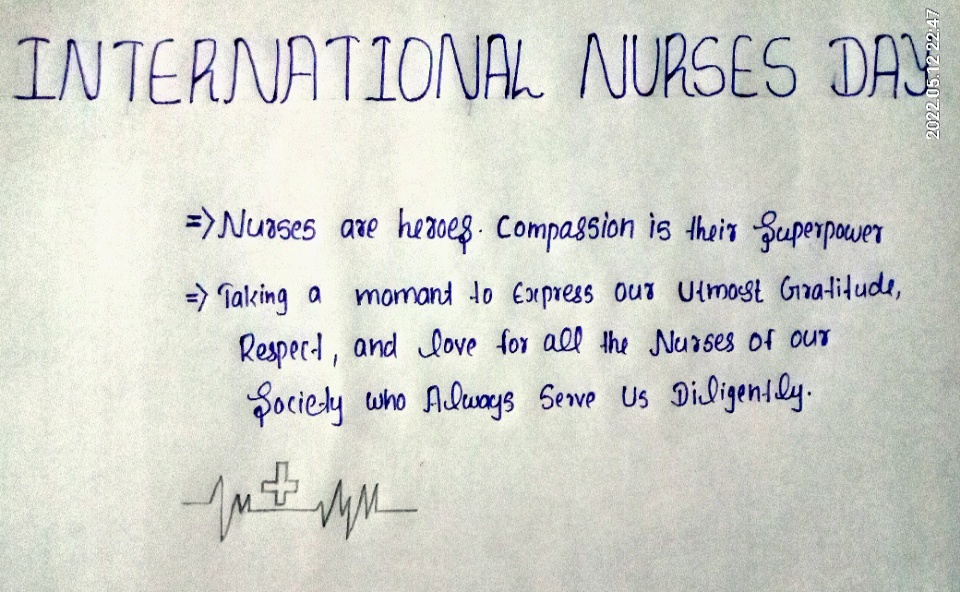 INTERNATIONAL NURSES DAY
2022.05.12 22:47
=> Nurses are heroes. Compassion is their Superpower
=> Taking a momant to Express our Utmost Gratitude,
Respect, and love for all the Nurses of our
Society who Always Serve Us Diligently.